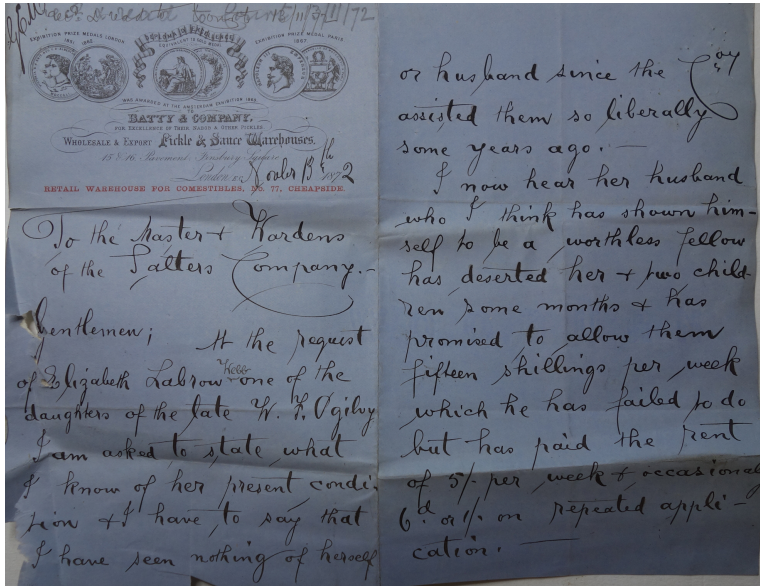 EXHIBITION PRIZE MEDALS LONDON
1851. 1862.
EQUIVALENT TO GOLD MEDAL
EXHIBITION PRIZE MEDAL PARIS
1867.
WAS AWARDED AT THE AMSTERDAM EXHIBITION 1869.
TO
BATTY & COMPANY.
FOR EXCELLENCE OF THEIR NABOB & OTHER PICKLES.
WHOLESALE & EXPORT Pickle & Sauce Warehouses.
15 & 16, Pavement, Finsbury Square
London, E.C. 13th 1872
RETAIL WAREHOUSE FOR COMESTIBLES, No. 77, CHEAPSIDE.
To the Master & Wardens
of the Salters Company.-
Gentlemen; At the request
of Elizabeth Labrow Kebb one of the
daughters of the late W. F. Ogilvy
I am asked to state what
I know of her present condi-
tion & I have to say that
I have seen nothing of herself
or husband since the Coy
assisted them so liberally
some years ago. —
I now hear her husband
who I think has shown him-
self to be a worthless fellow
has deserted her & two child-
ren some months & has
promised to allow them
fifteen shillings per week
which he has failed to do
but has paid the rent
of 5/- per week & occasional
6d. or 1/- on repeated appli-
cation. —